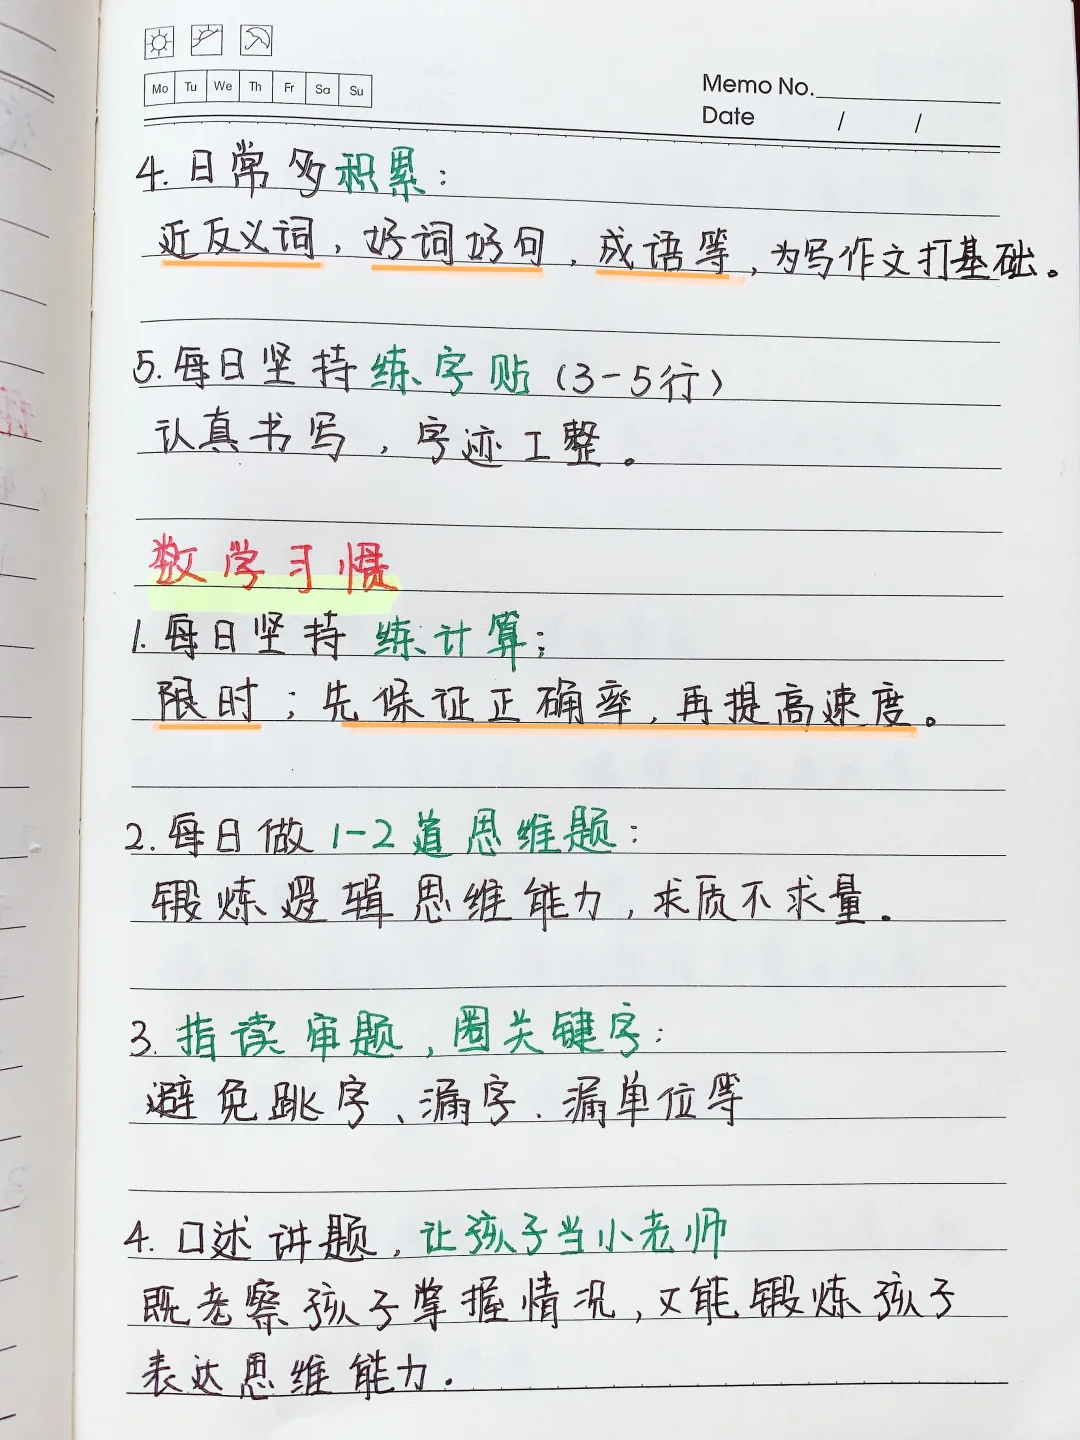 Mo Tu We Th Fr Sa Su
Memo No.
Date / /
4. 日常多积累：
近反义词，好词好句，成语等，为写作文打基础。
5. 每日坚持练字贴（3-5行）
认真书写，字迹工整。
数学习惯
1. 每日坚持练计算；
限时；先保证正确率，再提高速度。
2. 每日做1-2道思维题：
锻炼逻辑思维能力，求质不求量。
3. 指读审题，圈关键字：
避免跳字、漏字、漏单位等
4. 口述讲题，让孩子当小老师
既考察孩子掌握情况，又能锻炼孩子
表达思维能力.